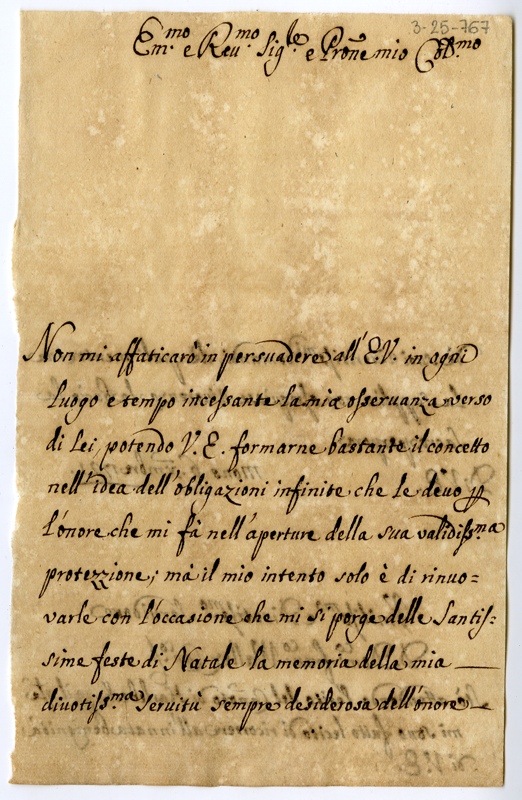 3-25-767
Em.mo e Reu.mo Sig.le e Prone mio Col.mo
Non mi affaticarò in persuadere all'E.V. in ogni
luogo e tempo incessante la mia osseruanza verso
di Lei, potendo V. E. formarne bastante il concetto
nell'idea dell'obligazioni infinite che le devo p
l'onore che mi fà nell'aperture della sua validiss.ma
protezzione; mà il mio intento solo è di rinuo=
varle con l'occasione che mi si porge delle Santis-
sime feste di Natale la memoria della mia
divotiss.ma Servitù sempre desiderosa dell'onore